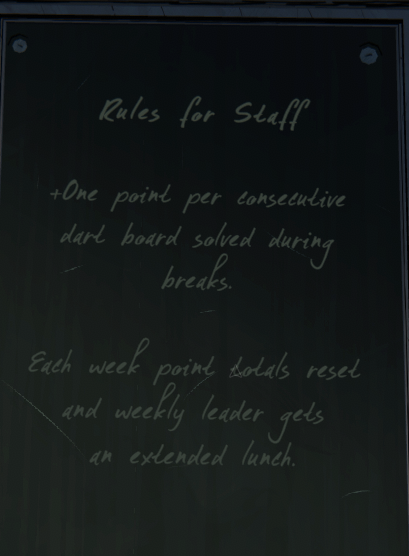 Rules for Staff
+One point per consecutive
dart board solved during
breaks.
Each week point totals reset
and weekly leader gets
an extended lunch.